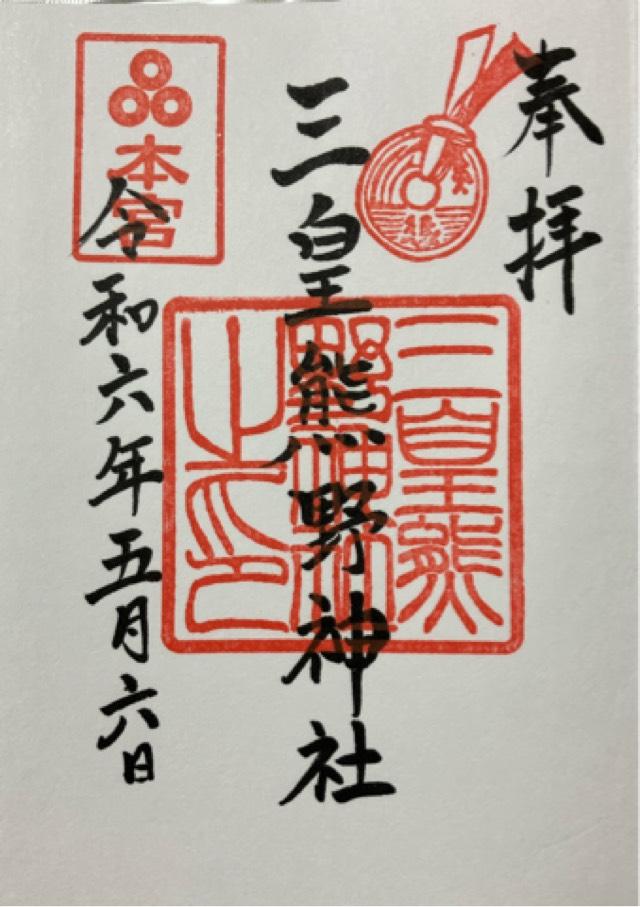 奉拝
三皇熊野神社
三皇熊
野神社
之印
本宮
令和六年五月六日